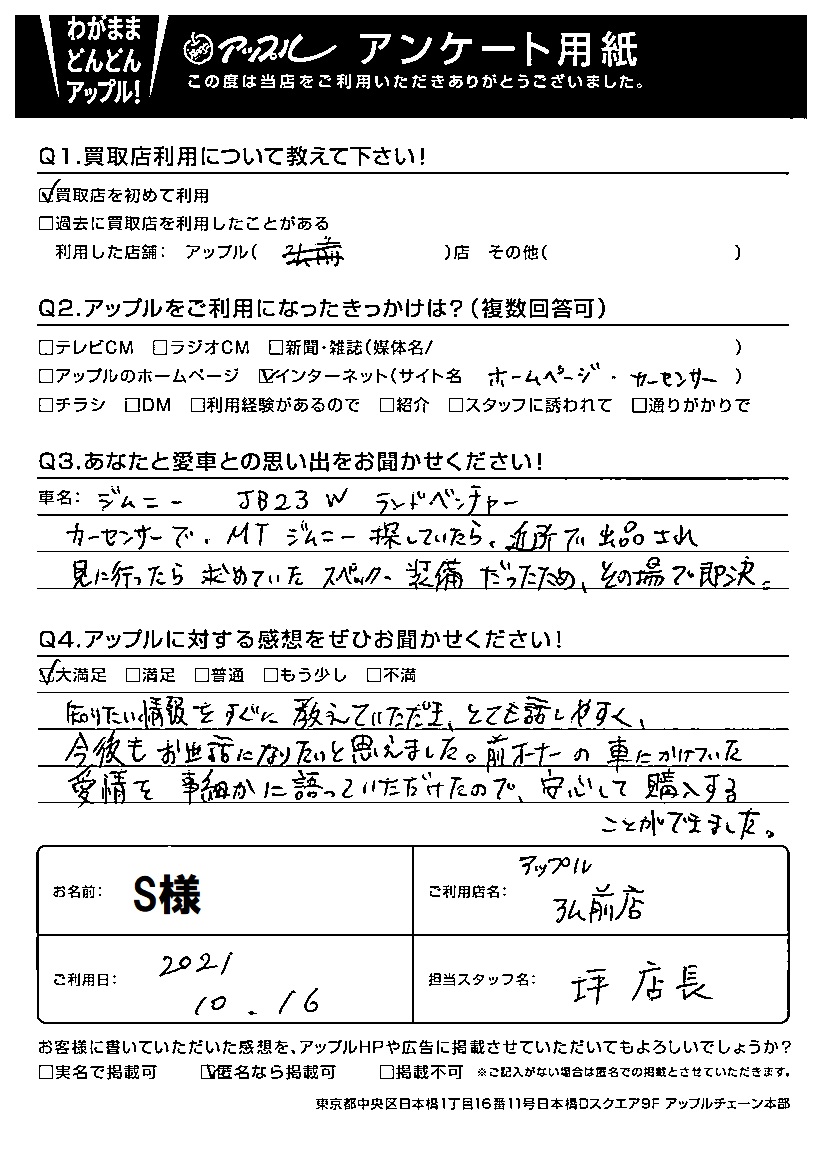 わがまま
どんどん
アップル!
アップル アンケート用紙
この度は当店をご利用いただきありがとうございました。
Q1.買取店利用について教えて下さい!
☑買取店を初めて利用
□過去に買取店を利用したことがある
利用した店舗: アップル( 弘前 )店 その他( )
Q2.アップルをご利用になったきっかけは?(複数回答可)
□テレビCM □ラジオCM □新聞・雑誌(媒体名/ )
□アップルのホームページ ☑インターネット(サイト名 ホームページ・カーセンサー )
□チラシ □DM □利用経験があるので □紹介 □スタッフに誘われて □通りがかりで
Q3.あなたと愛車との思い出をお聞かせください!
車名: ジムニー JB23W ランドベンチャー
カーセンサーで、MTジムニー探していたら、近所で出品され
見に行ったら求めていたスペック・装備だったため、その場で即決。
Q4.アップルに対する感想をぜひお聞かせください!
☑大満足 □満足 □普通 □もう少し □不満
知りたい情報をすぐに教えていただき、とても話しやすく、
今後もお世話になりたいと思えました。前オーナーの車にかけていた
愛情を事細かに語っていただけたので、安心して購入する
ことができました。
お名前: S様
ご利用店名: アップル
弘前店
ご利用日: 2021
10.16
担当スタッフ名: 坪 店長
お客様に書いていただいた感想を、アップルHPや広告に掲載させていただいてもよろしいでしょうか?
□実名で掲載可 ☑匿名なら掲載可 □掲載不可 ※ご記入がない場合は匿名での掲載とさせていただきます。
東京都中央区日本橋1丁目16番11号日本橋Dスクエア9F アップルチェーン本部